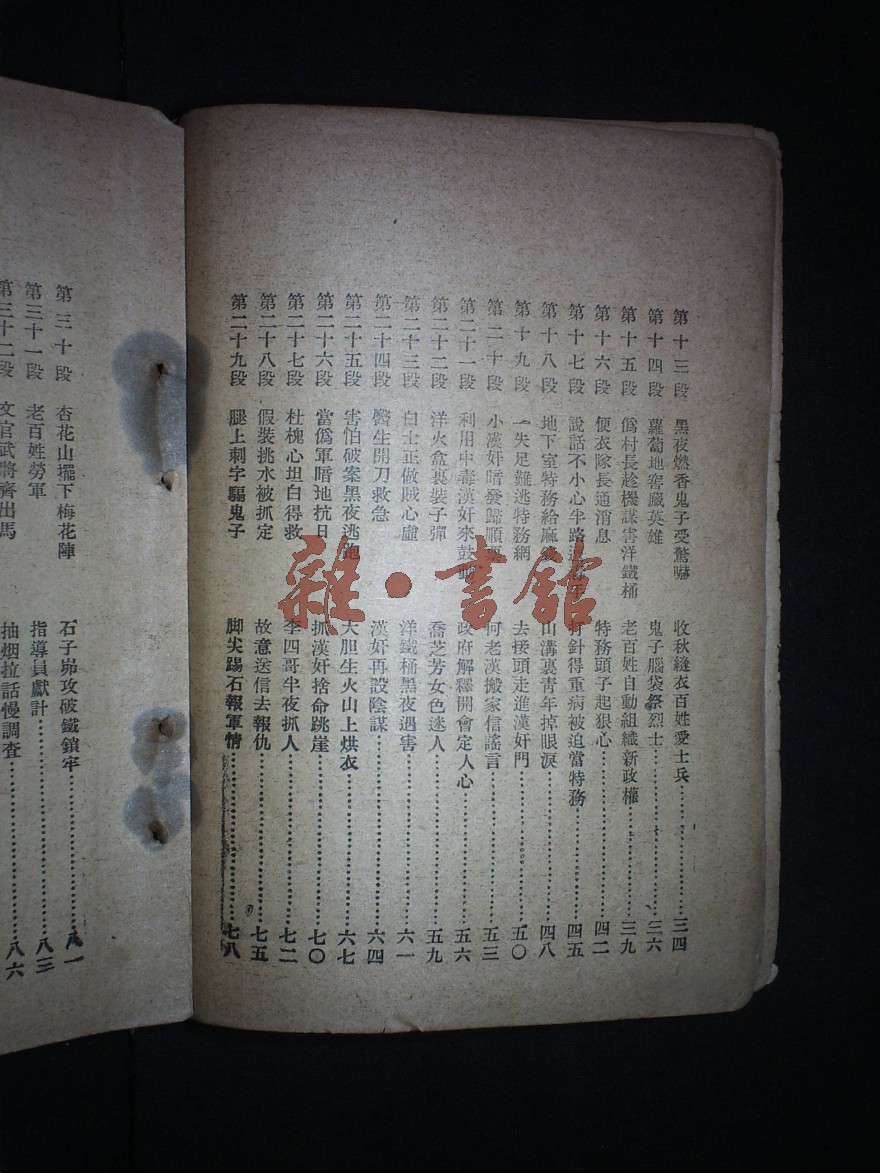 第十三段 黑夜燃香鬼子受驚嚇 收秋縫衣百姓愛士兵 三四
第十四段 蘿蔔地窖藏英雄 鬼子腦袋祭烈士 三六
第十五段 僞村長趁機謀害洋鐵桶 老百姓自動組織新政權 三九
第十六段 便衣隊長通消息 特務頭子起狠心 四二
第十七段 說話不小心半路 打針得重病被迫當特務 四五
第十八段 地下室特務給麻 山溝裏青年掉眼淚 四八
第十九段 一失足難逃特務網 去接頭走進漢奸門 五〇
第二十段 小漢奸暗發歸順票 何老漢搬家信謠言 五三
第二十一段 利用中毒漢奸來鼓動 政府解釋開會定人心 五六
第二十二段 洋火盒裏裝子彈 喬芝芳女色迷人 五九
第二十三段 白士正做賊心虛 洋鐵桶黑夜遇害 六一
第二十四段 醫生開刀救急 漢奸再設陰謀 六四
第二十五段 害怕破案黑夜逃跑 大胆生火山上烘衣 六七
第二十六段 當僞軍暗地抗日 抓漢奸捨命跳崖 七〇
第二十七段 杜槐心坦白得救 李四哥半夜抓人 七二
第二十八段 假裝挑水被抓定 故意送信去報仇 七五
第二十九段 腿上刺字驅鬼子 脚尖踢石報軍情 七八
第三十段 杏花山擺下梅花陣 石子峁攻破鐵鎖牢 八一
第三十一段 老百姓勞軍 指導員獻計 八三
第三十二段 文官武將齊出馬 抽烟拉話慢調查 八六
雜·書舘